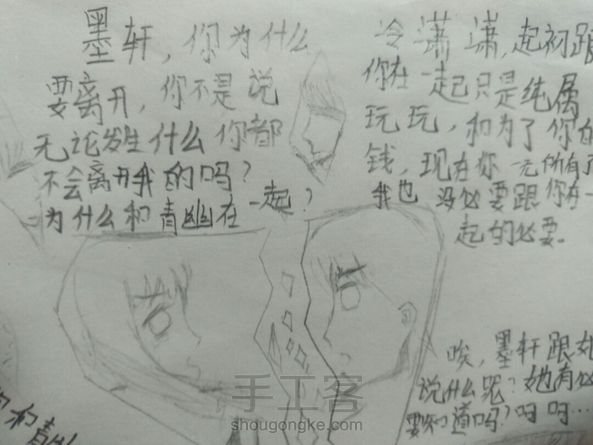 墨轩，你为什么
要离开，你不是说
无论发生什么你都
不会离开我的吗？
为什么和青幽在一起？
冷潇潇，起初跟
你在一起只是纯属
玩玩，和为了你的
钱，现在你一无所有了
我也没必要跟你在一
起的必要。
唉，墨轩跟她
说什么呢？她有必
要知道吗？呵呵…
和青幽
手工客
shougongke.com